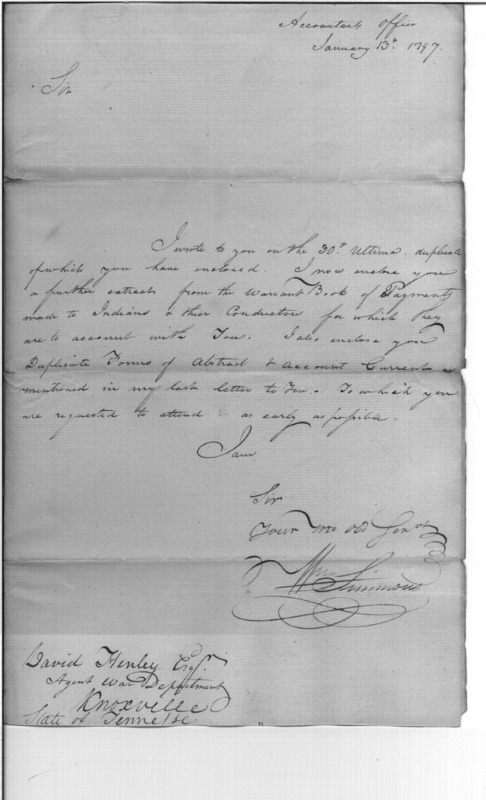 Accountants Office
January 13th. 1797.
Sir
I wrote to you on the 30th Ultimo. duplicate
of which you have enclosed. I now enclose you
a further extract from the Warrant Book of Payments
made to Indians & their Conductor for which they
are to account with You. I also enclose you
Duplicate Forms of Abstract & Account Current as
mentioned in my last letter to You.- To which you
are requested to attend as early as possible.
I am.
Sir
Your Mo Obd Servt
Wm Simmons
David Henley Esqr.
Agent War Department
Knoxville
State of Tennesse